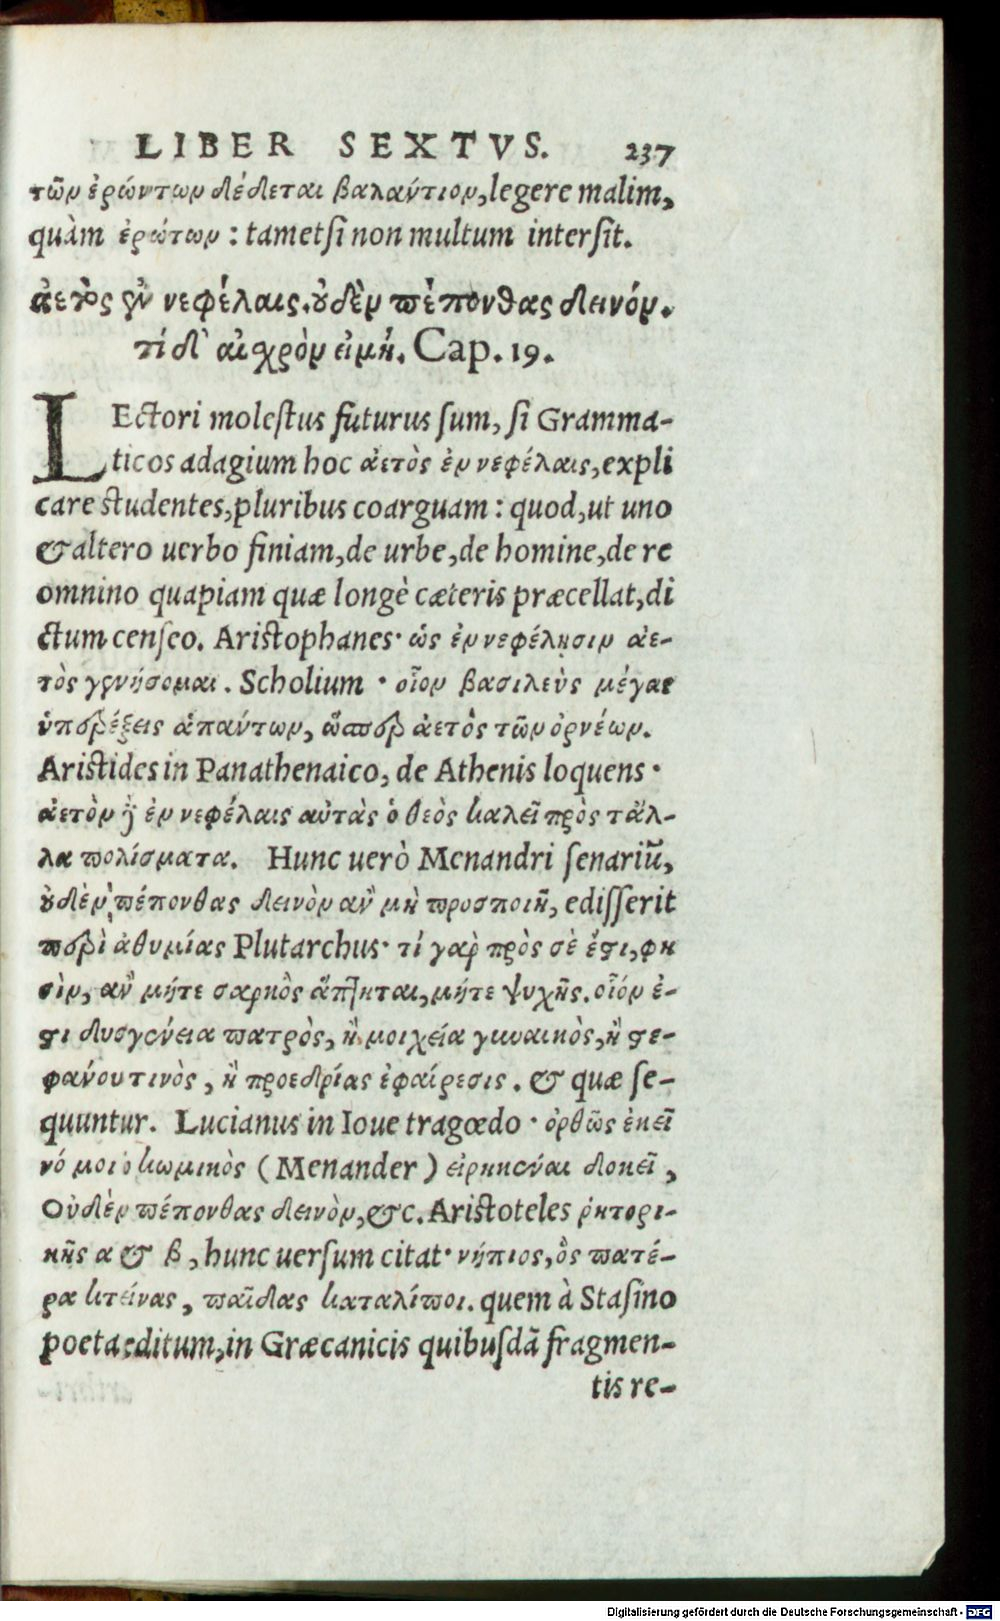 LIBER SEXTVS. 237
τῶν ἐρώντων δέδεται βαλάντιον, legere malim,
quàm ἐρώτων : tametsi non multum intersit.
ἀετὸς ἐν νεφέλαις. ὐδὲν πέπονθας δεινόν.
τί δ' αἰχρὸν εἰ μή. Cap. 19.
LEctori molestus futurus sum, si Gramma-
ticos adagium hoc ἀετὸς ἐν νεφέλαις, expli
care studentes, pluribus coarguam : quod, ut uno
& altero uerbo finiam, de urbe, de homine, de re
omnino quapiam quæ longè cæteris præcellat, di
ctum censeo. Aristophanes· ὡς ἐν νεφέλησιν ἀε-
τὸς γενήσομαι. Scholium · οἷον βασιλεὺς μέγας
ὑπερέξεις ἁπάντων, ὥσπερ ἀετὸς τῶν ὀρνέων.
Aristides in Panathenaico, de Athenis loquens ·
ἀετὸν ἐν νεφέλαις αὐτὰς ὁ θεὸς καλεῖ πρὸς τἆλ-
λα πολίσματα. Hunc uerò Menandri senariũ,
ὐδὲν πέπονθας δεινὸν ἂν μὴ προσποιῇ, edisserit
περὶ ἀθυμίας Plutarchus· τί γὰρ πρὸς σὲ ἔστι, φη
σὶν, ἂν μήτε σαρκὸς ἅπτηται, μήτε ψυχῆς. οἷόν ἐ-
στι δυσγένεια πατρὸς, ἢ μοιχεία γυναικὸς, ἢ στε-
φάνου τινὸς, ἢ προεδρίας ἐφαίρεσις. & quæ se-
quuntur. Lucianus in Ioue tragœdo · ὀρθῶς ἐκεῖ
νό μοι ὁ κωμικὸς (Menander) εἰρηκέναι δοκεῖ,
Οὐδὲν πέπονθας δεινὸν, &c. Aristoteles ῥητορι-
κῆς α & β, hunc uersum citat· νήπιος, ὃς πατέ-
ρα κτείνας, παῖδας καταλίποι. quem à Stasino
poeta editum, in Græcanicis quibusdã fragmen-
tis re-
Digitalisierung gefördert durch die Deutsche Forschungsgemeinschaft - DFG